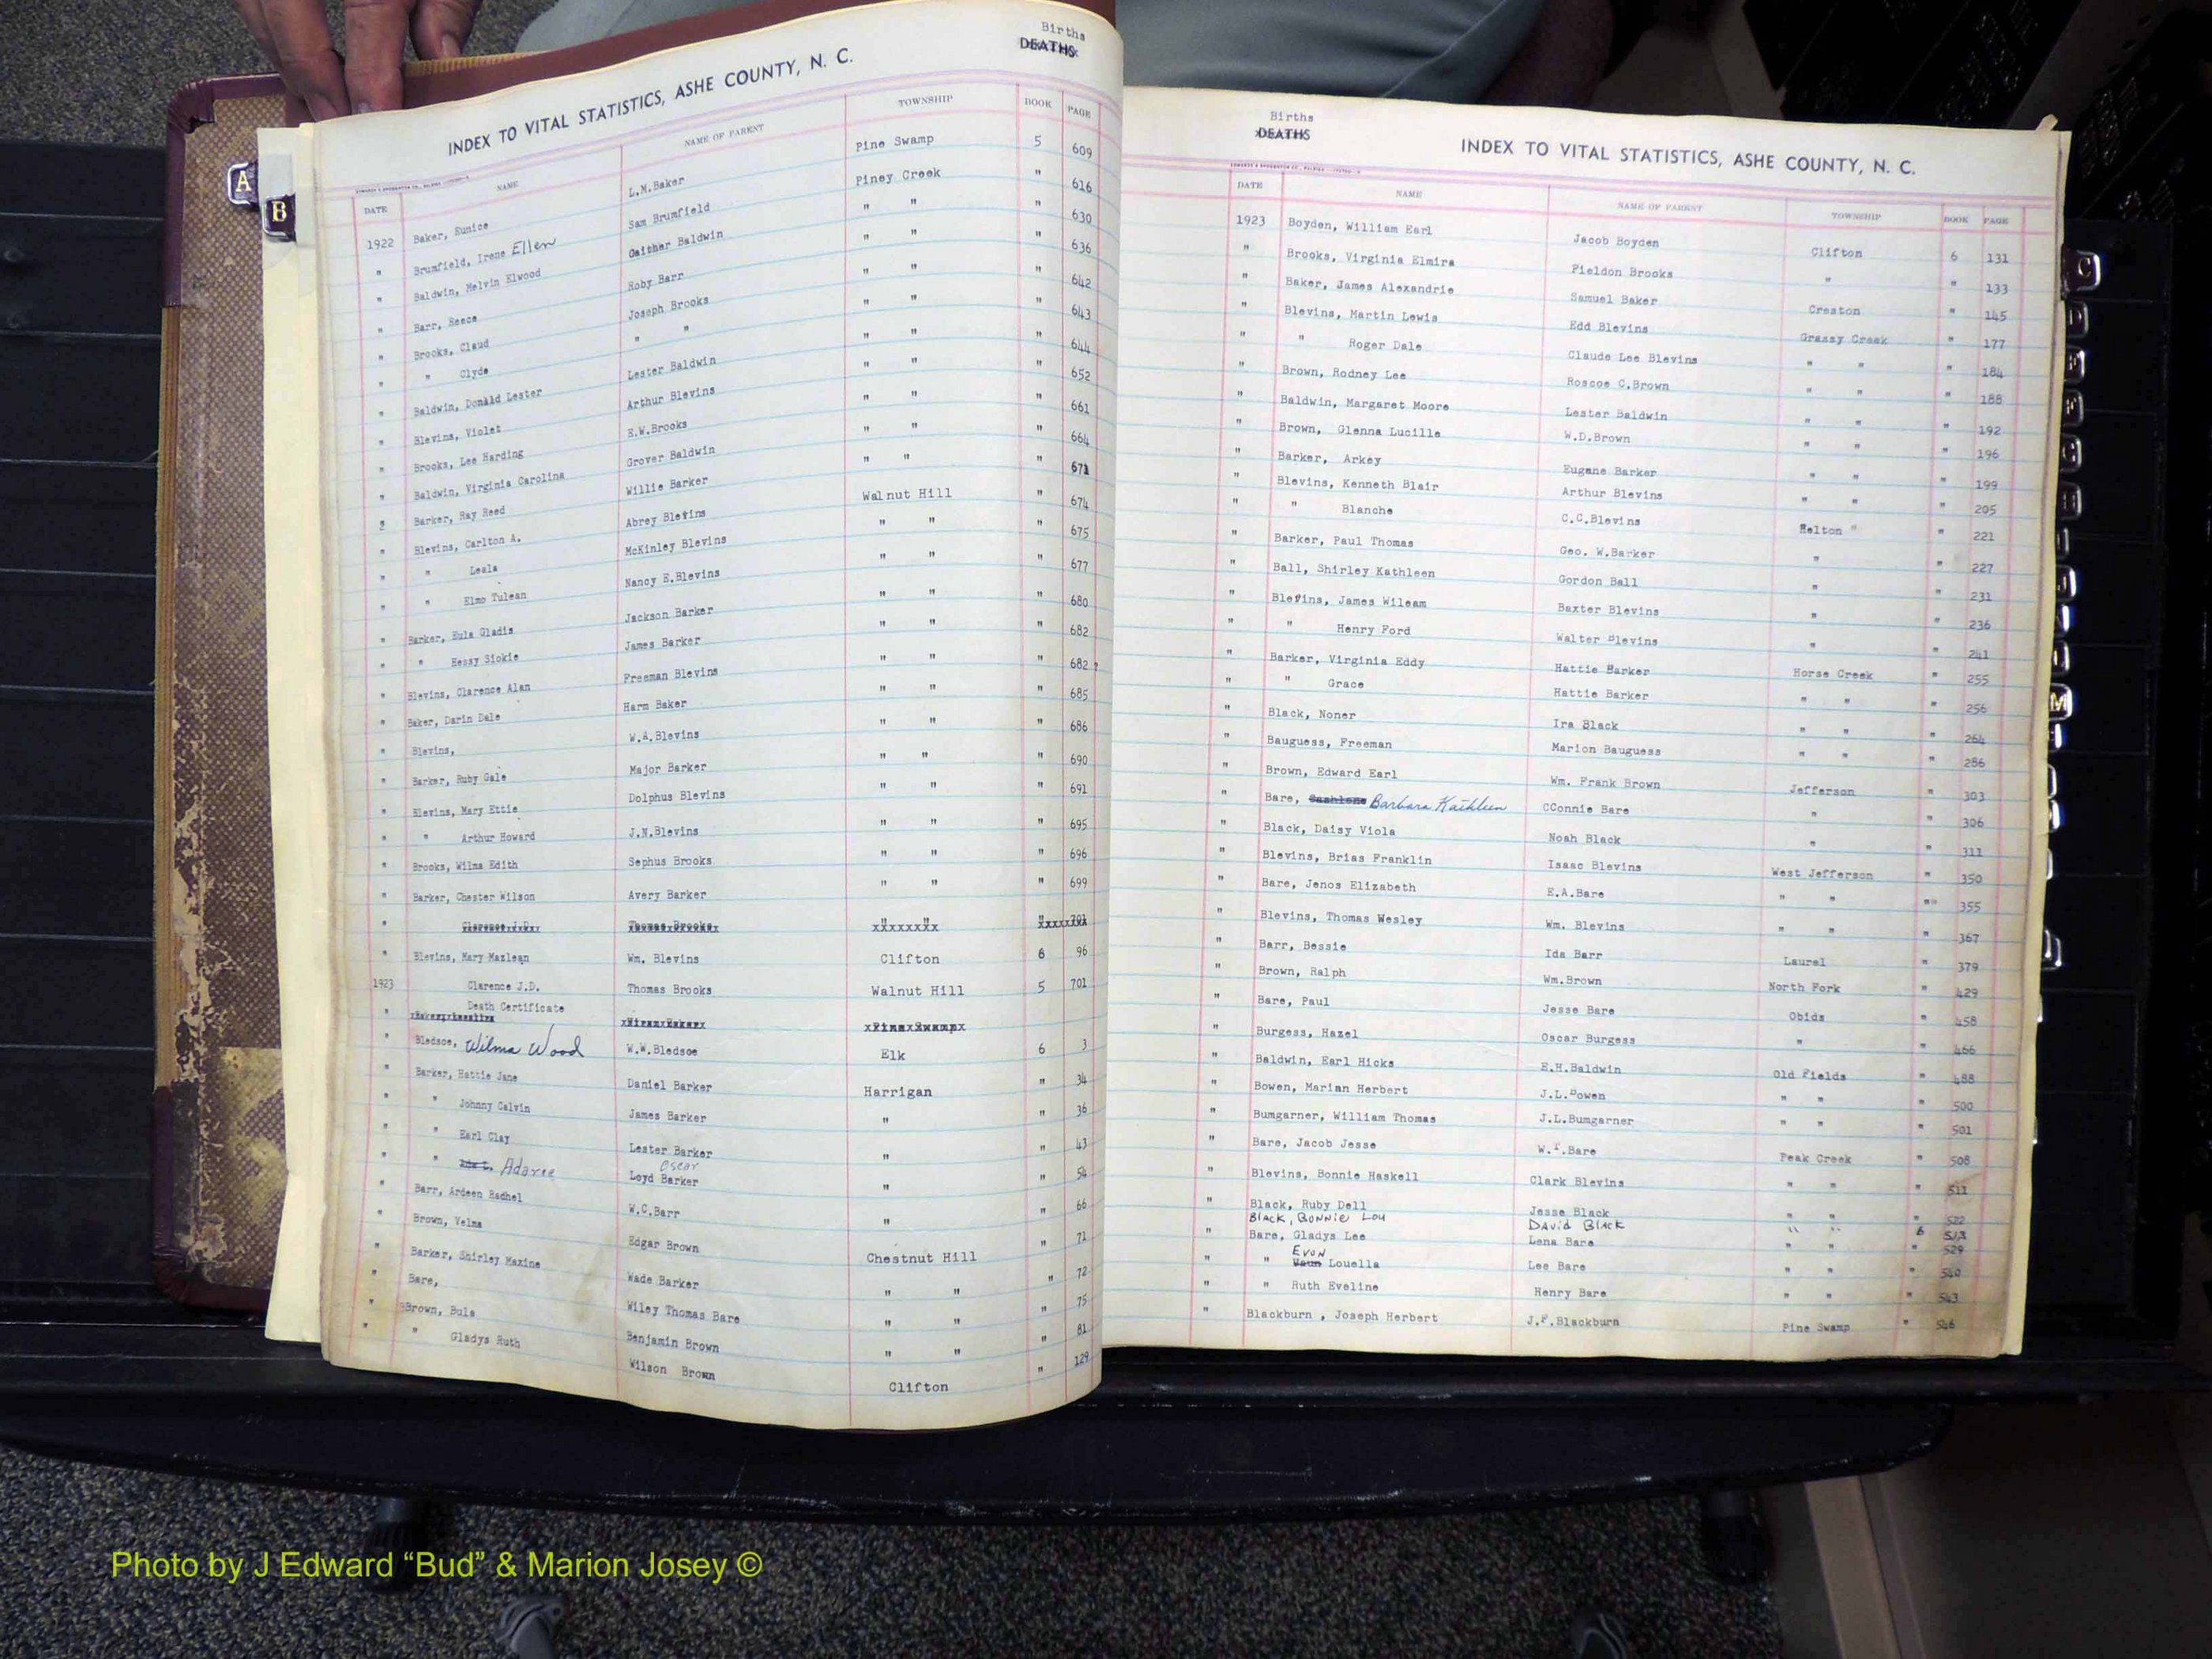 A
B
Births
DEATHS
INDEX TO VITAL STATISTICS, ASHE COUNTY, N. C.
DATE NAME NAME OF PARENT TOWNSHIP BOOK PAGE
1922 Baker, Eunice L.M.Baker Pine Swamp 5 609
" Brumfield, Irene Ellen Sam Brumfield Piney Creek " 616
" Baldwin, Melvin Elwood Gaither Baldwin " " " 630
" Barr, Reece Roby Barr " " " 636
" Brooks, Claud Joseph Brooks " " " 642
" " Clyde " " " " " 643
" Baldwin, Donald Lester Lester Baldwin " " " 644
" Blevins, Violet Arthur Blevins " " " 652
" Brooks, Lee Harding E.W.Brooks " " " 661
" Baldwin, Virginia Carolina Grover Baldwin " " " 664
Barker, Ray Reed Willie Barker " " " 671
" Blevins, Carlton A. Abrey Blevins Walnut Hill " 674
" " Leela McKinley Blevins " " " 675
" " Elmo Tulean Nancy E.Blevins " " " 677
" Barker, Eula Gladis Jackson Barker " " " 680
" " Hessy Siokie James Barker " " " 682
" Blevins, Clarence Alan Freeman Blevins " " " 682 ?
" Baker, Darin Dale Harm Baker " " " 685
" Blevins, W.A.Blevins " " " 686
" Barker, Ruby Gale Major Barker " " " 690
" Blevins, Mary Ettie Dolphus Blevins " " " 691
" " Arthur Howard J.N.Blevins " " " 695
" Brooks, Wilma Edith Sephus Brooks " " " 696
" Barker, Chester Wilson Avery Barker " " " 699
" Clarence J.D. Thomas Brooks xxxxxxxx 701
" Blevins, Mary Mazlean Wm. Blevins Clifton 6 96
1923 Clarence J.D. Thomas Brooks Walnut Hill 5 701
Death Certificate
" xPinexSwampx
" Bledsoe, Wilma Wood W.W.Bledsoe Elk 6 3
" Barker, Hattie Jane Daniel Barker Harrigan " 34
" " Johnny Calvin James Barker " " 36
" " Earl Clay Lester Barker " " 43
" " Adaree Loyd Oscar Barker " " 54
" Barr, Ardeen Radhel W.C.Barr " " 66
" Brown, Velma Edgar Brown Chestnut Hill " 71
" Barker, Shirley Maxine Wade Barker " " " 72
" Bare, Wiley Thomas Bare " " " 75
" Brown, Bula Benjamin Brown " " " 81
" " Gladys Ruth Wilson Brown Clifton " 129
Births
DEATHS
INDEX TO VITAL STATISTICS, ASHE COUNTY, N. C.
DATE NAME NAME OF PARENT TOWNSHIP BOOK PAGE
1923 Boyden, William Earl Jacob Boyden Clifton 6 131
" Brooks, Virginia Elmira Fieldon Brooks " " 133
" Baker, James Alexandrie Samuel Baker Creston " 145
" Blevins, Martin Lewis Edd Blevins Grassy Creek " 177
" " Roger Dale Claude Lee Blevins " " " 184
" Brown, Rodney Lee Roscoe C.Brown " " " 188
" Baldwin, Margaret Moore Lester Baldwin " " " 192
" Brown, Glenna Lucille W.D.Brown " " " 196
" Barker, Arkey Eugene Barker " " " 199
" Blevins, Kenneth Blair Arthur Blevins " " " 205
" " Blanche C.C.Blevins Helton " " 221
" Barker, Paul Thomas Geo. W.Barker " " 227
" Ball, Shirley Kathleen Gordon Ball " " 231
" Blevins, James Wileam Baxter Blevins " " 236
" " Henry Ford Walter Blevins " " 241
" Barker, Virginia Eddy Hattie Barker Horse Creek " 255
" " Grace Hattie Barker " " " 256
" Black, Noner Ira Black " " " 264
" Bauguess, Freeman Marion Bauguess " " " 286
" Brown, Edward Earl Wm. Frank Brown Jefferson " 303
" Bare, Barbara Kathleen CConnie Bare " " 306
" Black, Daisy Viola Noah Black " " 311
" Blevins, Brias Franklin Isaac Blevins West Jefferson " 350
" Bare, Jenos Elizabeth E.A.Bare " " "" 355
" Blevins, Thomas Wesley Wm. Blevins " " " 367
" Barr, Bessie Ida Barr Laurel " 379
" Brown, Ralph Wm.Brown North Fork " 429
" Bare, Paul Jesse Bare Obids " 458
" Burgess, Hazel Oscar Burgess " " 466
" Baldwin, Earl Hicks E.H.Baldwin Old Fields " 488
" Bowen, Marian Herbert J.L.Bowen " " " 500
" Bumgarner, William Thomas J.L.Bumgarner " " " 501
" Bare, Jacob Jesse Peak Creek " 508
" Blevins, Bonnie Haskell Clark Blevins " " " 511
" Black, Ruby Dell Jesse Black " " " 522
Black, Bonnie Lou David Black " " 6 513
" Bare, Gladys Lee Lena Bare " " " 529
" " Evon Louella Lee Bare " " " 540
" " Ruth Eveline Henry Bare " " " 543
" Blackburn , Joseph Herbert J.F.Blackburn Pine Swamp " 546
C
D
E
F
G
M
Photo by J Edward “Bud” & Marion Josey ©